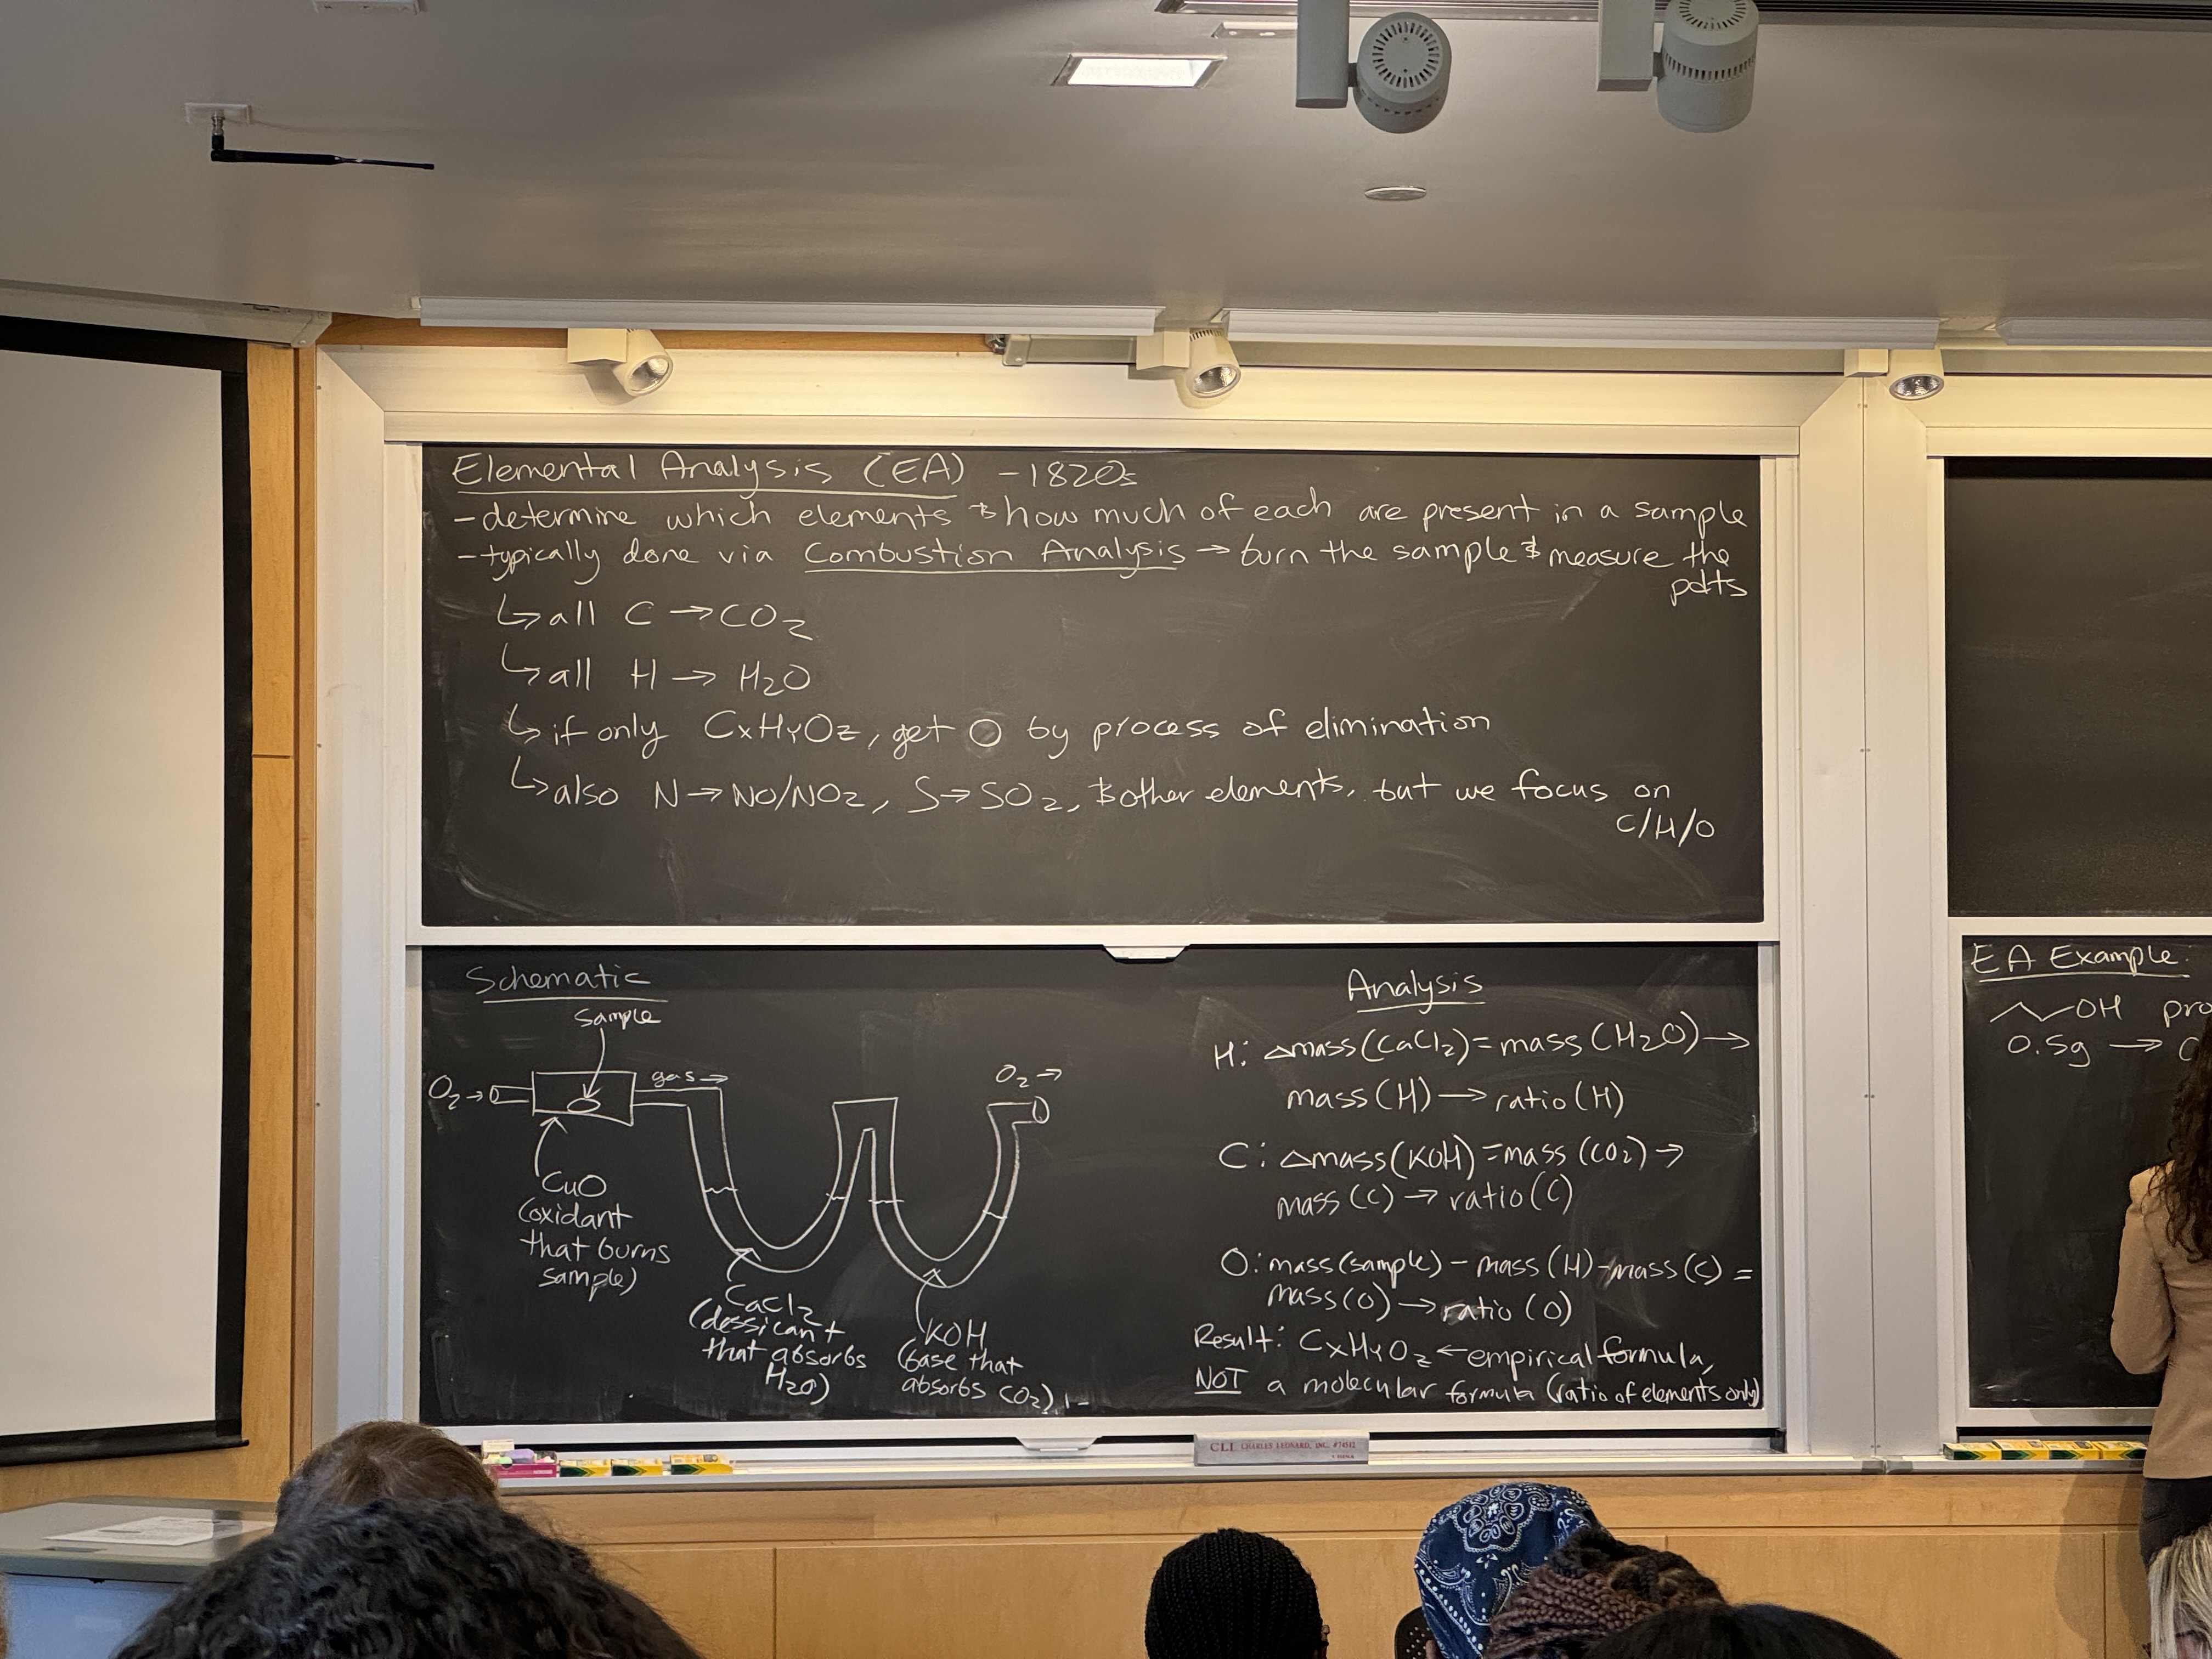 Elemental Analysis (EA) - 1820s
- determine which elements & how much of each are present in a sample
- typically done via Combustion Analysis → burn the sample & measure the
pdts
↳ all C → CO₂
↳ all H → H₂O
↳ if only CxHyOz, get O by process of elimination
↳ also N → NO/NO₂, S → SO₂, & other elements, but we focus on
C/H/O
Schematic
sample
O₂ →
gas →
O₂ →
CuO
(oxidant
that burns
sample)
CaCl₂
(dessicant
that absorbs
H₂O)
KOH
(base that
absorbs CO₂)
Analysis
H: Δmass(CaCl₂) = mass(H₂O) →
mass(H) → ratio(H)
C: Δmass(KOH) = mass(CO₂) →
mass(C) → ratio(C)
O: mass(sample) - mass(H) - mass(C) =
mass(O) → ratio(O)
Result: CxHyOz ← empirical formula,
NOT a molecular formula (ratio of elements only)
EA Example:
OH pro
0.5g → C
CLI CHARLES LEONARD, INC. #74542